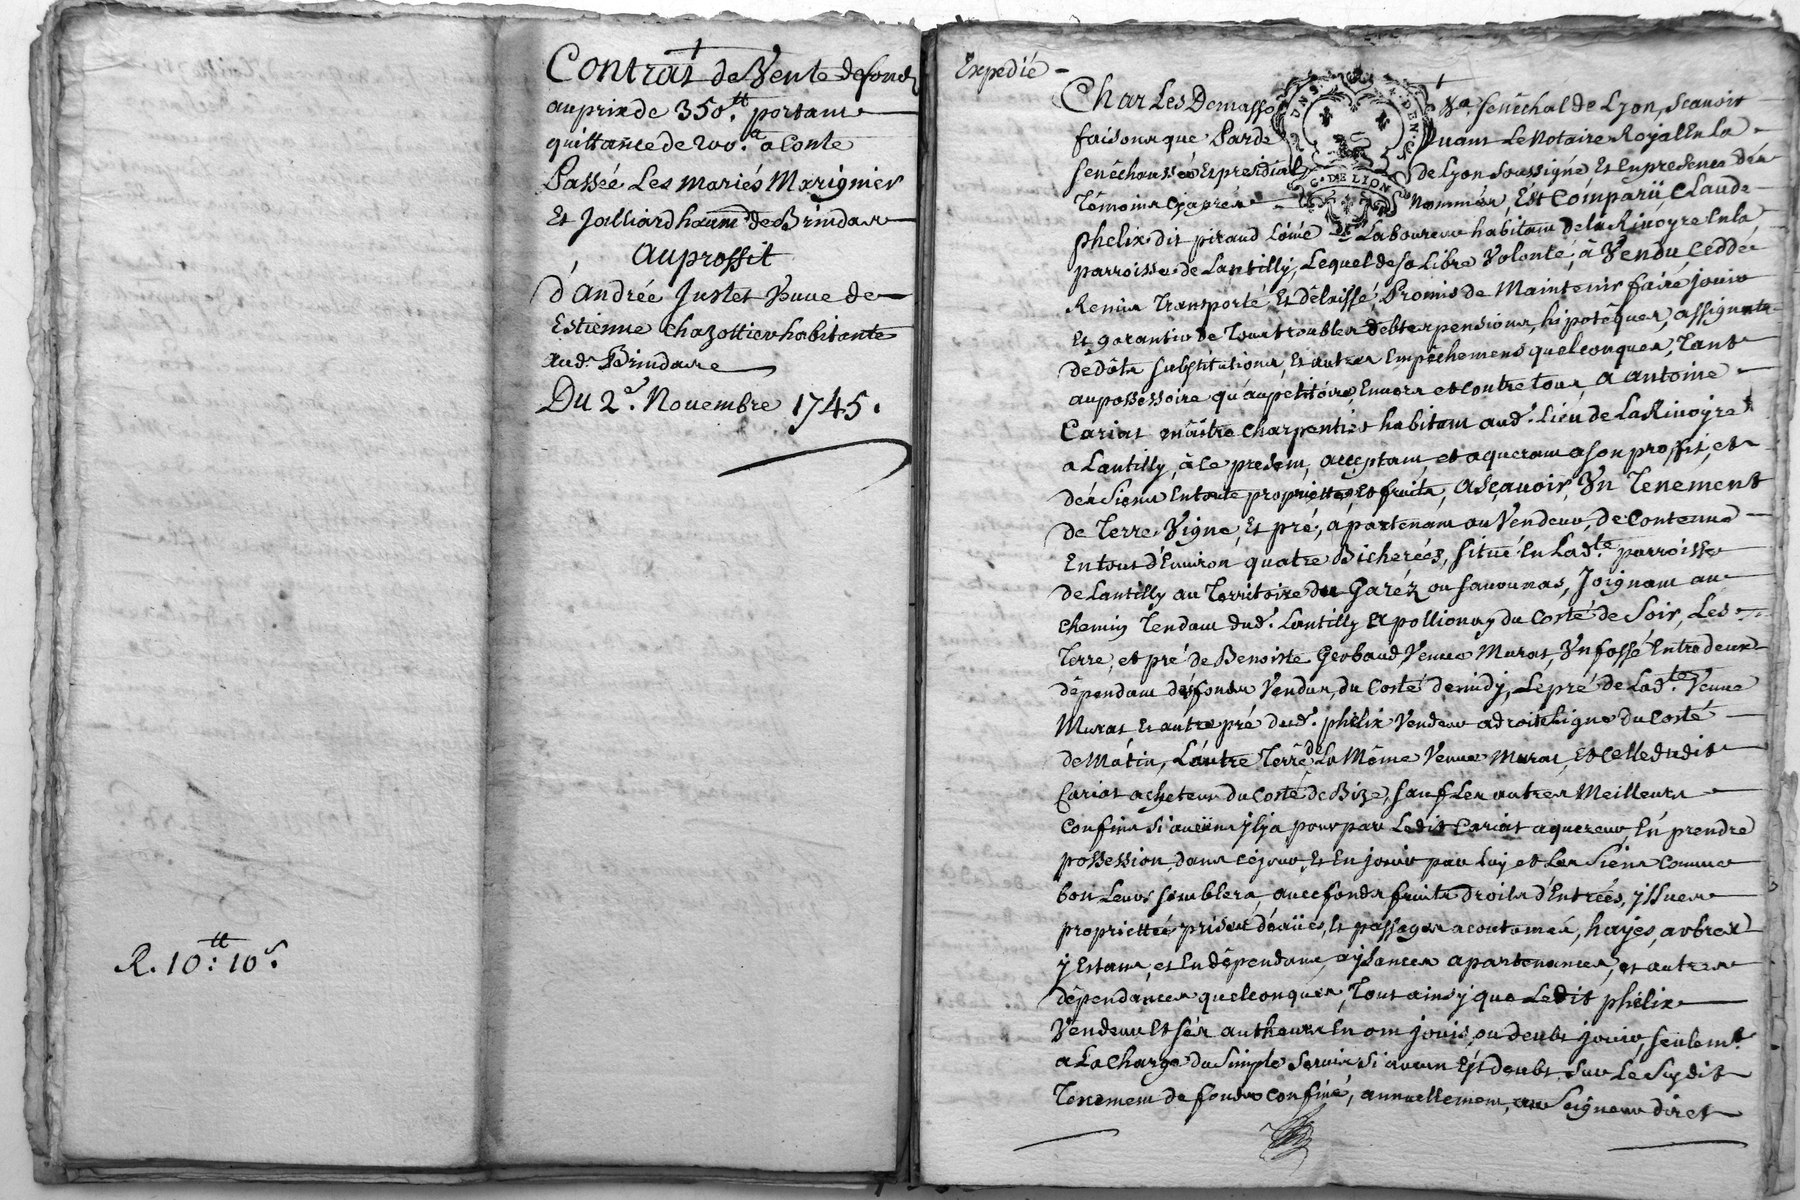 Contrat de Vente de fond
au prix de 350.tt portant
quittance de 200.tt a Conte
Passée Les mariés Marignier
Et Jalliard habitants de Brindas
Au proffit
d'Andrée Juslet Veuve de
Estienne chazottier habitante
aud. Brindas
Du 2e. Novembre 1745.
R. 10:tt 10s.
Expedié
Charles Demasso Sénéchal de Lyon, Scavoir
faisons que Par de vant Le Notaire Royal En la
Senéchaussée Et presidial de Lyon Soussigné Et En presence des
Témoins Cy après Nommés, Est Comparü Claude
phelix dit piraud Laboureur habitant de la Rivoyre En la
parroisse de Lantilly, Lequel de sa Libre Volonté, à Vendu, Ceddé
Remis Transporté Et Délaissé Promis de Maintenir faire jouir
Et garantir de Tous troubles debtes pensions, hipotèques, assignats
de dôts substitutions, Et autres Empêchemens quelconques, Tant
au possessoire qu'au pétitoire, Envers et contre tous, a antoine
Cariat maître charpentier habitant aud. Lieu de La Rivoyre
a Lantilly, à ce present, acceptant, et aquerant a son proffit, et
des Siens En toute proprietté, Et fruits, ascavoir, Un Tenement
de Terre, Vigne, Et pré, apartenant au Vendeur, de contenue
En tout d'Environ quatre Bicherées, situé En Lad.te parroisse
de Lantilly au Territoire du Garéz ou Savounas, Joignant au
chemin Tendant dud. Lantilly a pollionay du Costé de Soir, Les
Terre, et pré de Benoiste Gerbaud Veuve Murat, Un fossé Entre deux
dépendant des fonds Vendus, du Costé de midy, Le pré de Lad.te Veuve
Murat et autre pré dud. phélix Vendeur a droite Ligne du Costé
de Matin, L'autre Terre de La Même Veuve Murat, Et celle dudit
Cariat acheteur du Costé de Bize, Sauf Les autres Meilleurs
Confins si aucüns y'l'ya pour par Ledit Cariat aquereur En prendre
possession dans ce jour, Et En jouir par Luy et Les Siens comme
bon Leurs semblera, avec fonds fruits droits d'Entrées, yssues
propriettés prises d'eaües, Et passages acoutumés, hayes, arbres
y Estans, et En dépendans, aysances apartenances, et autres
dépendances quelconques, Tout ainsy que Ledit phélix
Vendeur Et ses autheurs En ont jouis, ou deubt jouir, seulem.t
a La charge du Simple Servis si aucun Est deubt Sur Le Susdit
Tenement de fonds confiné, annuellement, au Seigneur diret